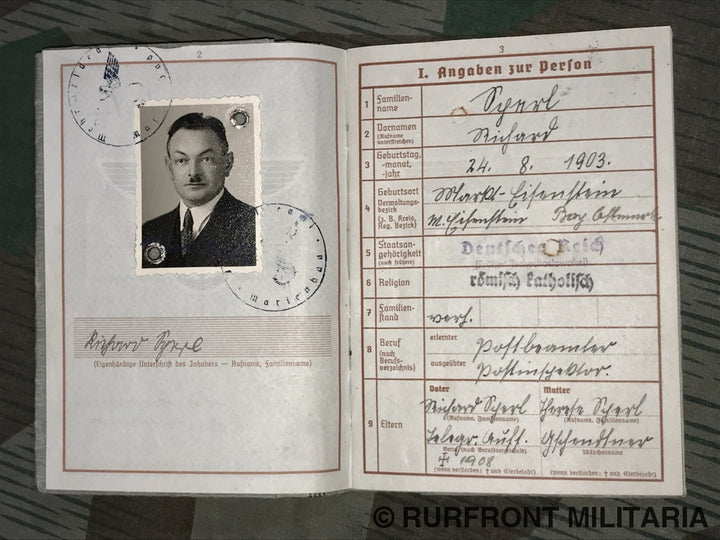 2
Wehrmeldeamt
Marienbad
Richard Sperl
(Eigenhändige Unterschrift des Inhabers — Rufname, Familienname)
3
I. Angaben zur Person
1 Familien-
name
Sperl
2 Vornamen
(Rufname
unterstreichen)
Richard
3 Geburtstag,
-monat,
-jahr
24. 8. 1903.
4 Geburtsort
Verwaltungs-
bezirk
(z. B. Kreis,
Reg. Bezirk)
Markt-Eisenstein
M. Eisenstein Bay. Ostmark
5 Staatsan-
gehörigkeit
(auch frühere)
Deutsches Reich
6 Religion
römisch katholisch
7 Familien-
stand
verh.
8 Beruf
(nach
Berufs-
verzeichnis)
erlernter
Postbeamter
ausgeübter
Postinspektor.
9 Eltern
Vater
Mutter
Richard Sperl
Therese Sperl
(Rufname, Familienname)
(Rufname, Familienname)
Telegr. Aufs.
Gschendtner
Beruf (nach Berufsverzeichnis)
(Mädchenname)
† 1908
(wenn verstorben: † und Sterbejahr)
(wenn verstorben: † und Sterbejahr)
© RURFRONT MILITARIA